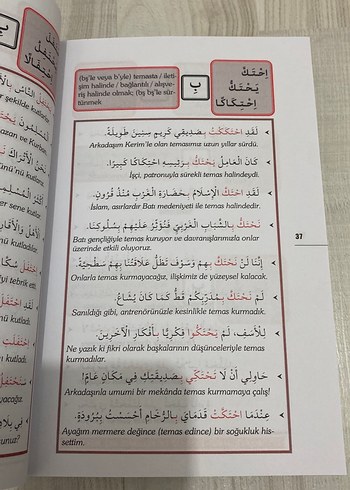 اِحْتَكَّ
يَحْتَكُّ
اِحْتِكَاكًا
بِ
(bş'le veya b'yle) temasta / ileti-
şim halinde / bağlantılı / alışve-
riş halinde olmak; (bş bş'le sür-
tünmek
لَقَدِ احْتَكَكْتُ بِصَدِيقِي كَرِيمٍ سِنِينَ طَوِيلَةً.
Arkadaşım Kerim'le olan temasımız uzun yıllar sürdü.
كَانَ الْعَامِلُ يَحْتَكُّ بِرَئِيسِهِ احْتِكَاكًا كَبِيرًا.
İşçi, patronuyla sürekli temas halindeydi.
لَقَدِ احْتَكَّ الْإِسْلَامُ بِحَضَارَةِ الْغَرْبِ مُنْذُ قُرُونٍ.
İslam, asırlardır Batı medeniyeti ile temas halindedir.
نَحْتَكُّ بِالشَّبَابِ الْغَرْبِيِّ فَنُؤَثِّرُ عَلَيْهِمْ بِسُلُوكِنَا.
Batı gençliğiyle temas kuruyor ve davranışlarımızla onlar
üzerinde etkili oluyoruz.
إِنَّنَا لَنْ نَحْتَكَّ بِهِمْ وَسَوْفَ تَظَلُّ عَلَاقَتُنَا بِهِمْ سَطْحِيَّةً.
Onlarla temas kurmayacağız, ilişkimiz de yüzeysel kalacak.
لَمْ نَحْتَكَّ بِمُدَرِّبِكُمْ قَطُّ كَمَا كَانَ يُشَاعُ.
Sanıldığı gibi, antrenörünüzle kesinlikle temas kurmadık.
لِلْأَسَفِ، لَمْ يَحْتَكُّوا فِكْرِيًّا بِأَفْكَارِ الْآخَرِينَ.
Ne yazık ki fikri olarak başkalarının düşünceleriyle temas
kurmadılar.
حَاوِلِي أَنْ لَا تَحْتَكِّي بِصَدِيقَتِكِ فِي مَكَانٍ عَامٍّ!
Arkadaşınla umumi bir mekânda temas kurmamaya çalış!
عِنْدَمَا احْتَكَّتْ قَدَمَايَ بِالرُّخَامِ أَحْسَسْتُ بِبُرُودَةٍ.
Ayağım mermere değince (temas edince) bir soğukluk his-
settim.
37